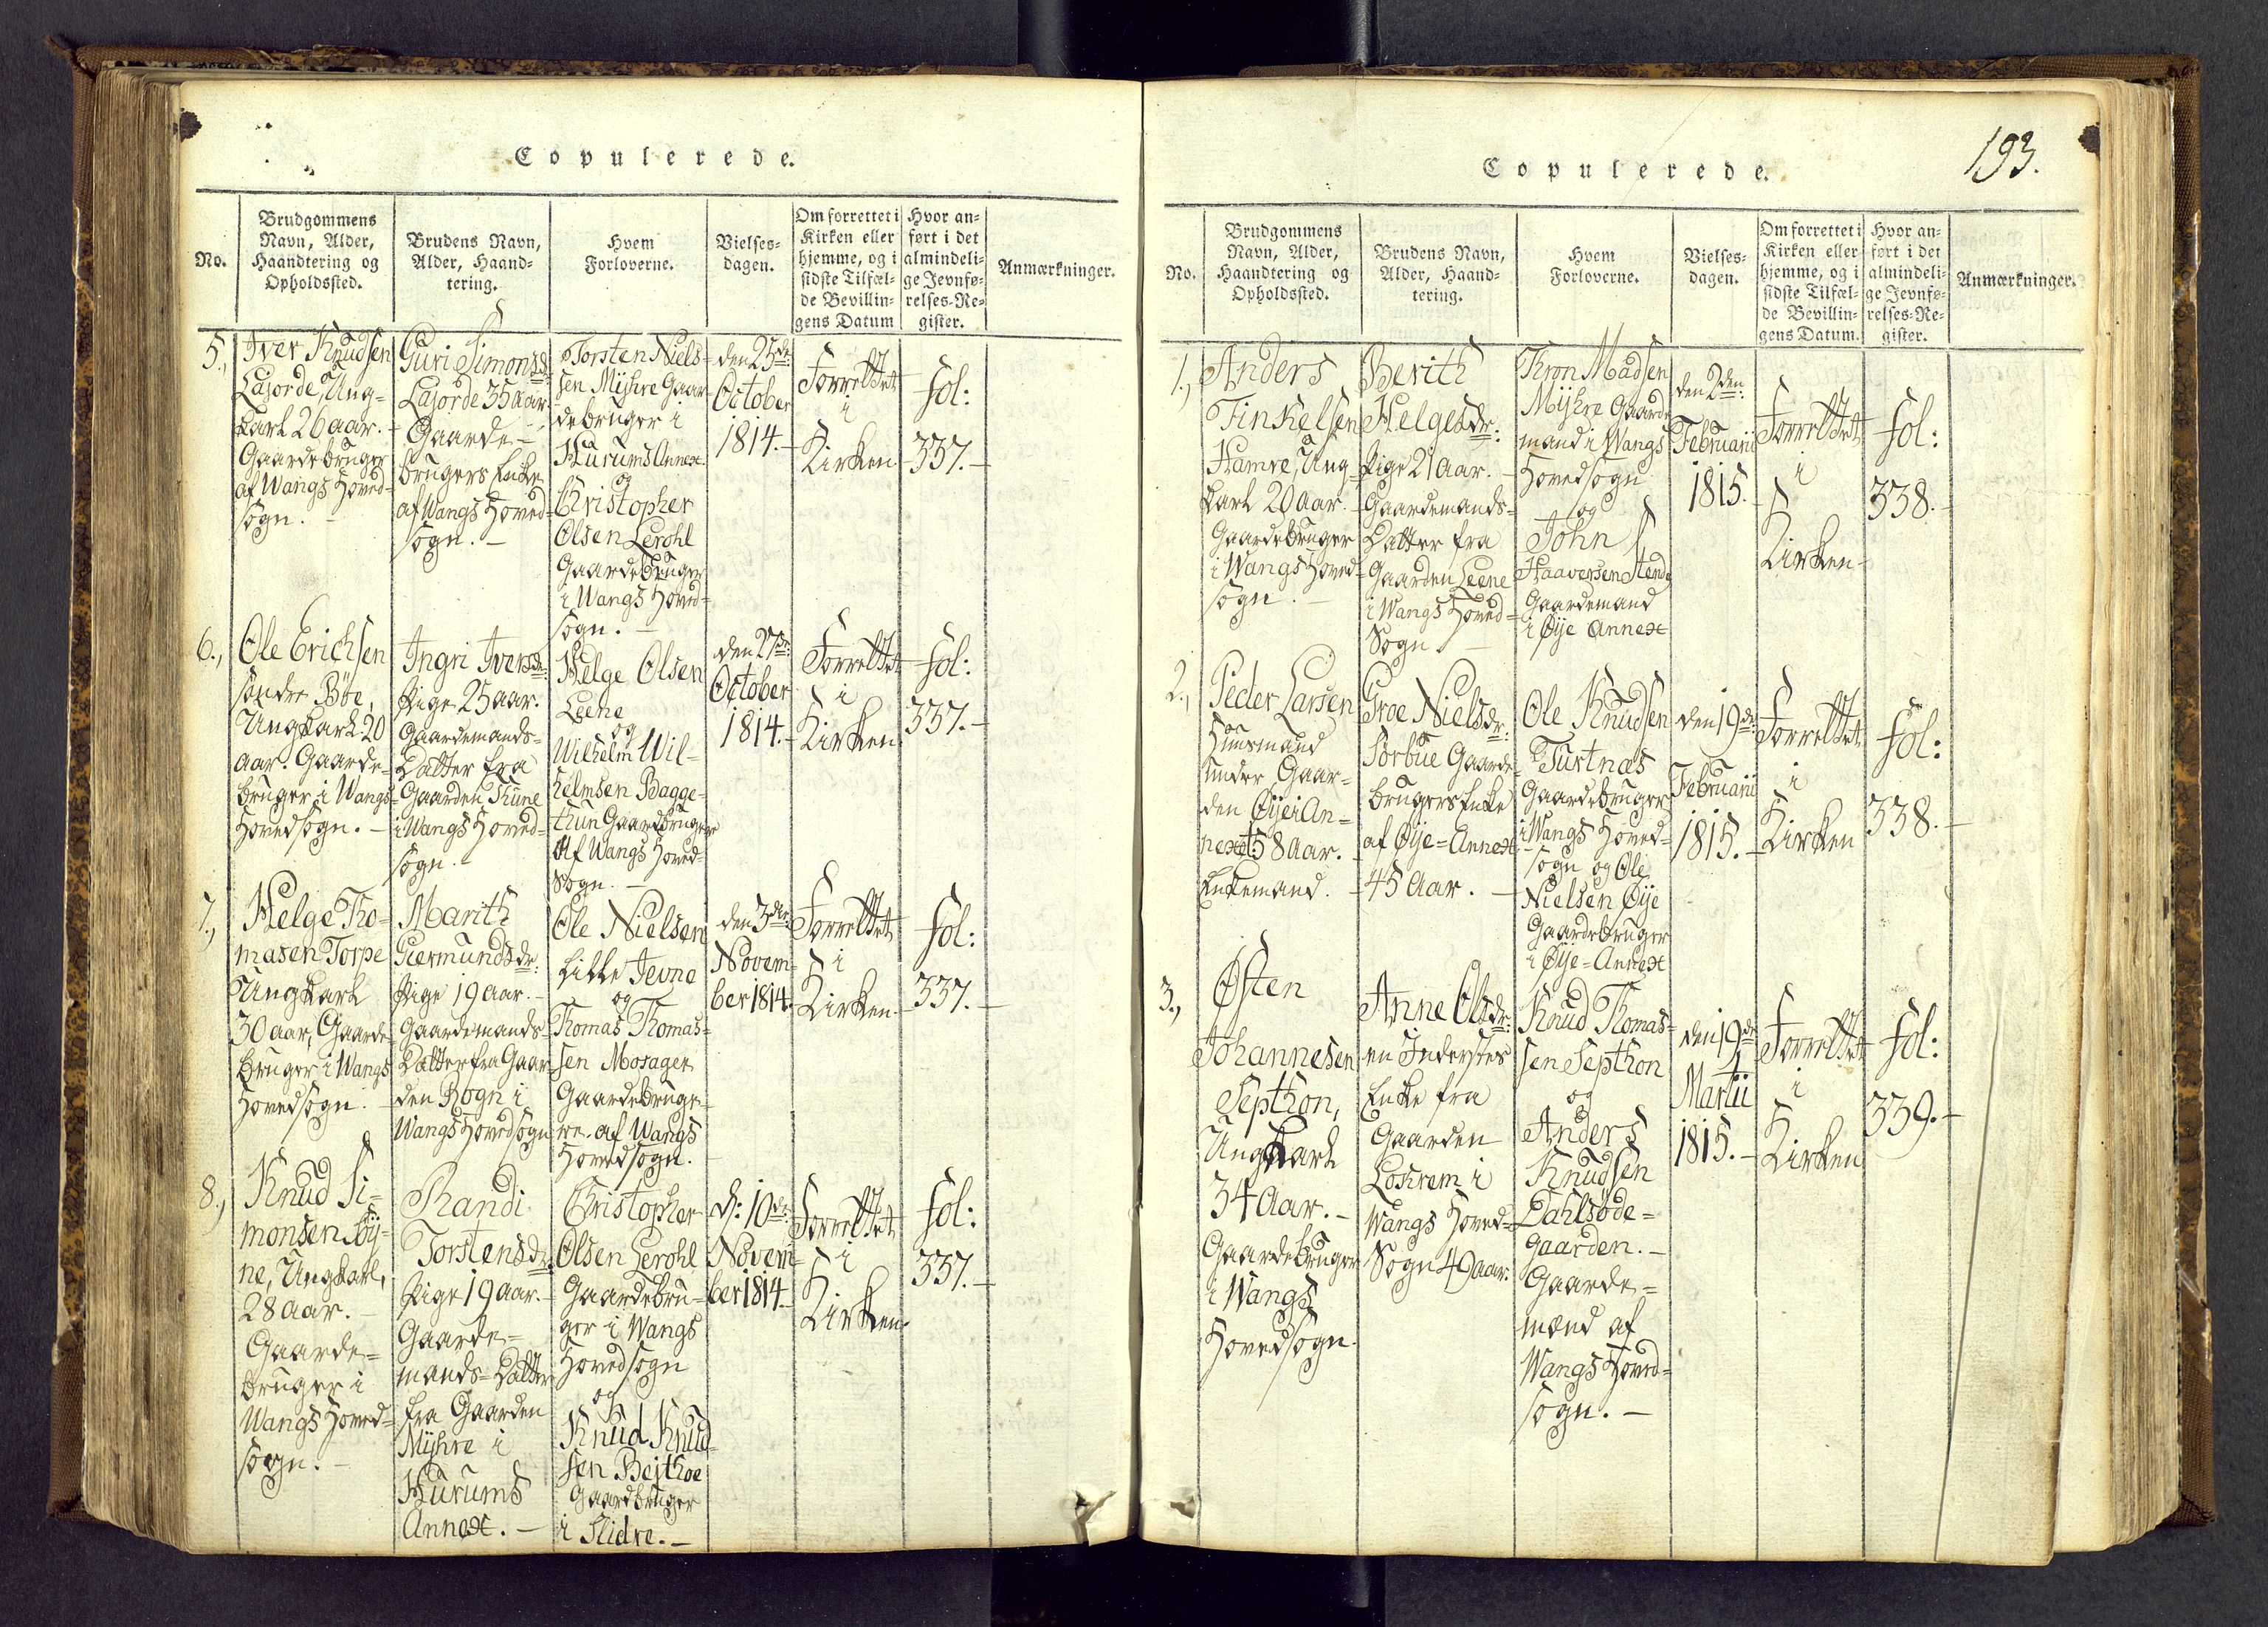 Copulerede.
No.
Brudgommens
Navn, Alder,
Haandtering og
Opholdssted.
Brudens Navn,
Alder, Haand-
tering.
Hvem
Forloverne.
Vielses-
dagen.
Om forrettet i
Kirken eller
hjemme, og i
sidste Tilfæl-
de Bevillin-
gens Datum
Hvor an-
ført i det
almindeli-
ge Jevnfø-
relses-Re-
gister.
Anmærkninger.
5.,
Iver Knudsen
Lajorde, Ung-
karl 26 aar.
Gaardebruger
af Wangs Hoved-
sogn. -
Guri Simonsdr:
Lajorde 35 aar.
Gaarde-
brugers Enke
af Wangs Hoved-
sogn. -
Torsten Niels-
sen Myhre Gaar-
debruger i
Hurums Annex.
og
Christopher
Olsen Lerohl
Gaardebruger
i Wangs Hoved-
sogn. -
den 25de:
October
1814. -
Forrettet
i
Kirken
fol:
337. -
6.,
Ole Erichsen
søndre Böe,
Ungkarl 20
aar. Gaarde-
bruger i Wangs
Hovedsogn. -
Ingri Iversdr:
Pige 25 aar.
Gaardemands-
Datter fra
Gaarden Kune
i Wangs Hoved-
sogn. -
Helge Olsen
Leene
og
Wilhelm Wil-
helmsen Bagge-
thun Gaardbrugere
af Wangs Hoved-
Sogn. -
den 27de:
October
1814. -
Forrettet
i
Kirken
fol:
337. -
7.,
Helge Tho-
masen Torpe
Ungkarl
30 aar, Gaarde-
bruger i Wangs
Hovedsogn. -
Marith
Giermundsdr:
Pige 19 aar. -
Gaardemands
Datter fra Gaar-
den Rogn i
Wangs Hovedsogn
Ole Nielsen
Lille Jevne
og
Thomas Thomas-
sen Mosagen
Gaardebruge-
re af Wangs
Hovedsogn.
den 3die:
Novem-
ber 1814.
Forrettet
i
Kirken
fol:
337. -
8.,
Knud Si-
monsen Røy-
ne, Ungkarl,
28 aar. -
Gaarde-
bruger i
Wangs Hoved-
sogn. -
Randi
Torstensdr:
Pige 19 aar. -
Gaarde-
mands-Datter
fra Gaarden
Myhre i
Hurums
Annex. -
Christopher
Olsen Lerohl
Gaardebru-
ger i Wangs
Hovedsogn
og
Knud Knud-
sen Bejthoe
Gaardbruger
i Slidre. -
d: 10de:
Novem-
ber 1814. -
Forrettet
i
Kirken.
fol:
337. -
193.
Copulerede.
No.
Brudgommens
Navn, Alder,
Haandtering og
Opholdssted.
Brudens Navn,
Alder, Haand-
tering.
Hvem
Forloverne.
Vielses-
dagen.
Om forrettet i
Kirken eller
hjemme, og i
sidste Tilfæl-
de Bevillin-
gens Datum.
Hvor an-
ført i det
almindeli-
ge Jevnfø-
relses-Re-
gister.
Anmærkninger.
1.,
Anders
Finkelsen
Hamre, Ung-
karl 20 aar. -
Gaardebruger
i Wangs Hoved-
sogn. -
Berith
Helgesdr:
Pige 21 aar. -
Gaardemands-
Datter fra
Gaarden Leene
i Wangs Hoved-
Sogn. -
Thron Madsen
Myhre Gaarde-
mand i Wangs
Hovedsogn
og
John
Haaversen Stende
Gaardemand
i Øye Annex
den 2den:
Februarii
1815. -
Forrettet
i
Kirken -
fol:
338. -
2.,
Peder Larsen
Huusmand
under Gaar-
den Øye i An-
nexet 58 aar.
Enkemand. -
Groe Nielsdr:
Sørbue Gaarde-
brugers Enke
af Øye-Annex
45 aar. -
Ole Knudsen
Turtnæs
Gaardebruger
i Wangs Hoved-
sogn og Ole
Nielsen Øye
Gaardebruger
i Øye-Annex
den 19de:
Februarii
1815. -
Forrettet
i
Kirken
fol:
338. -
3.,
Østen
Johannesen
Septhon,
Ungkarl
34 aar. -
Gaardebruger
i Wangs
Hovedsogn.
Anne Olsdr:
en Inderstes
Enke fra
Gaarden
Loskrem i
Wangs Hoved-
Sogn 49 aar.
Knud Thomas-
sen Septhon
og
Anders
Knudsen
Dahlsøde-
gaarden. -
Gaarde-
mænd af
Wangs Hoved-
sogn. -
den 19de
Martii
1815. -
Forrettet
i
Kirken
fol:
339. -